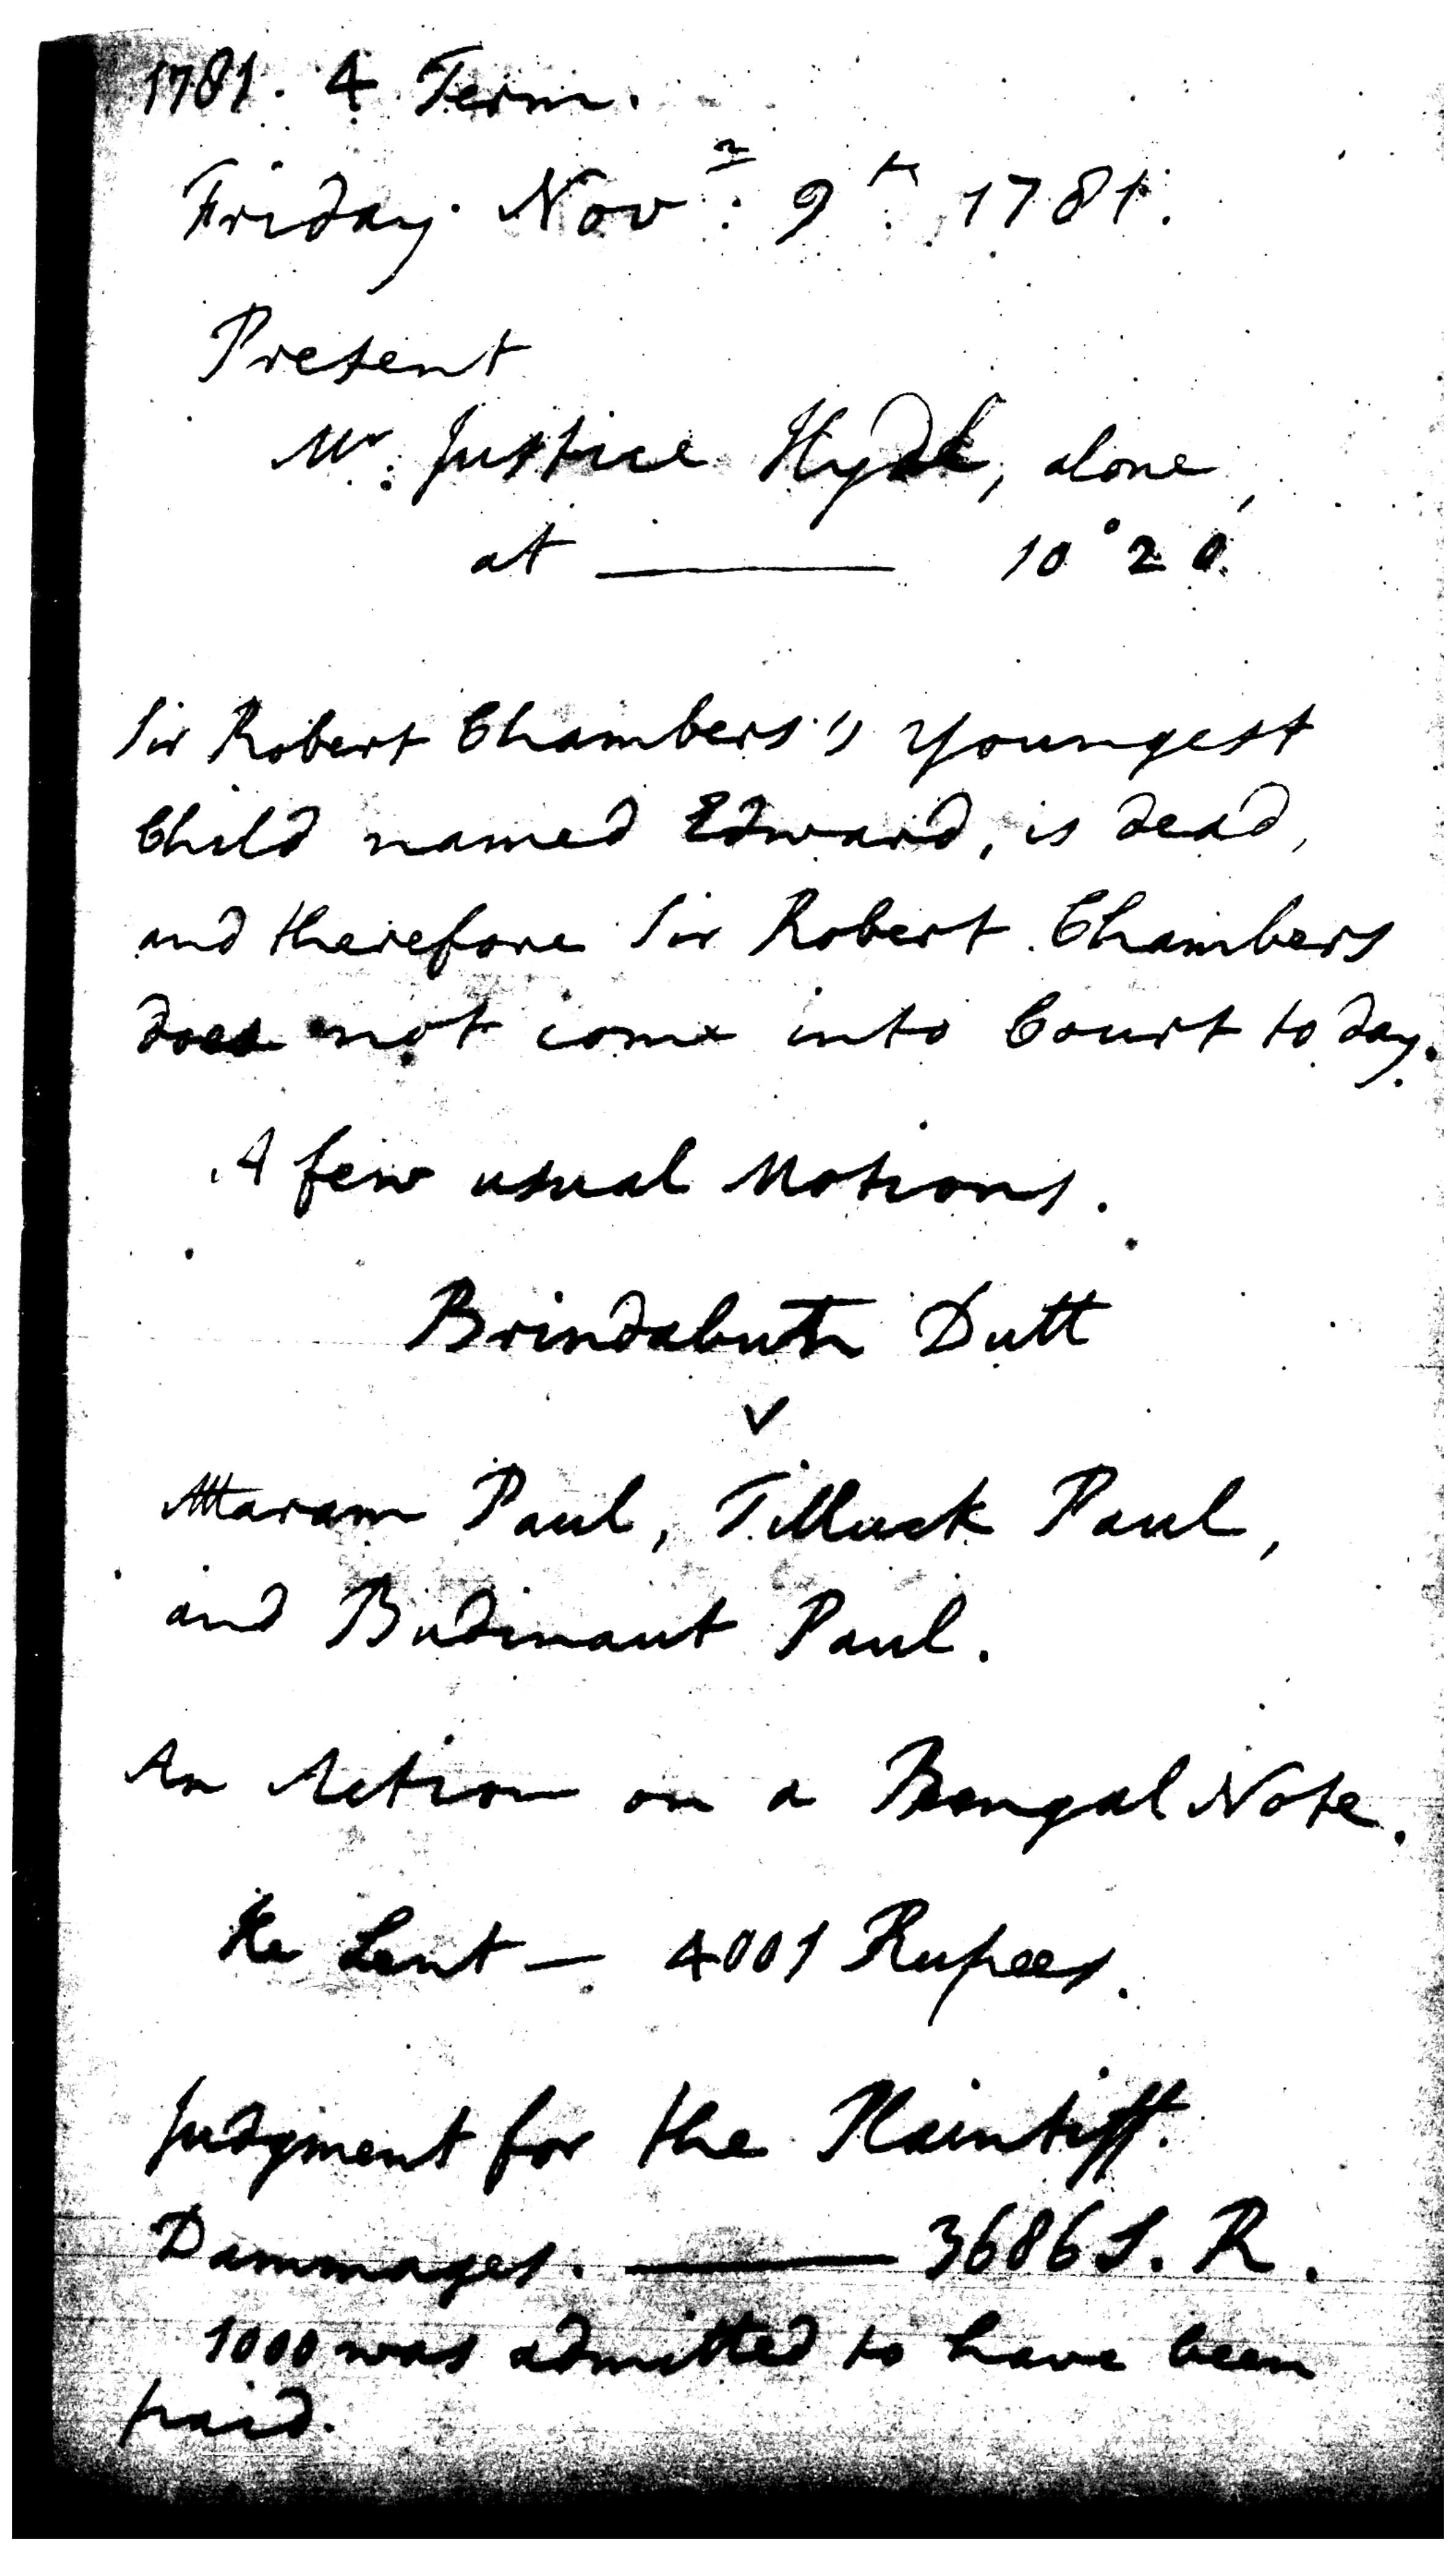 1781. 4 Term.
Friday. Novr: 9th. 1781.
Present
Mr. Justice Hyde, alone,
at ——— 10° 20.
Sir Robert Chambers's youngest
Child named Edward, is dead,
and therefore Sir Robert Chambers
does not come into Court to day.
A few usual Motions.
Brindabuth Dutt
v
Attaram Paul, Tilluck Paul,
and Budinaut Paul.
An Action on a Bengal Note.
He Lent — 4001 Rupees.
Judgment for the Plaintiff.
Dammages. ——— 3686 S. R.
1000 was admitted to have been
paid.